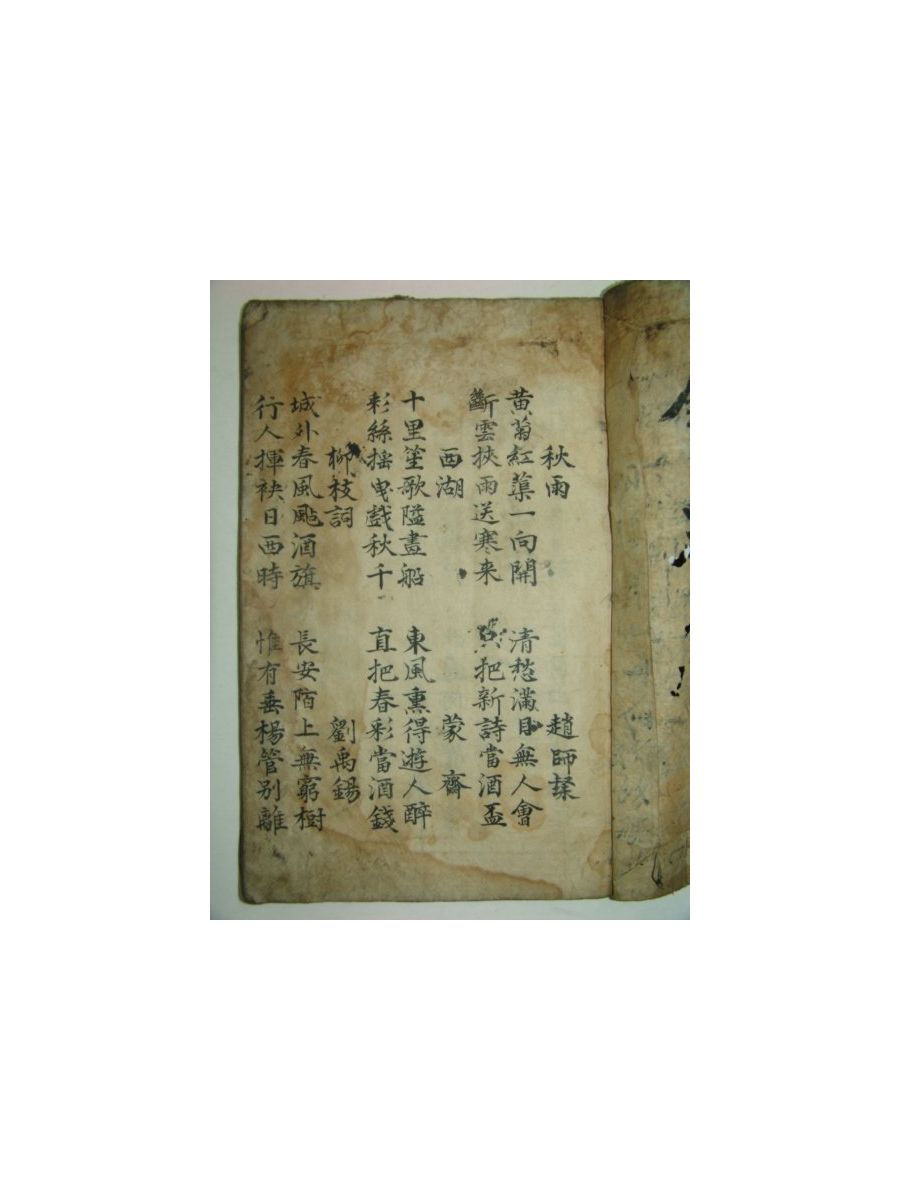 秋雨 趙師
黄菊紅蕖一向開 清愁滿目無人會
斷雲挾雨送寒来 只把新詩當酒盃
西湖 蒙齋
十里笙歌隘畫船 東風熏得遊人醉
彩絲揺曳戱秋千 直把春彩當酒錢
柳枝詞 劉禹錫
城外春風颭酒旗 長安陌上無窮樹
行人揮袂日西時 惟有垂楊管别離